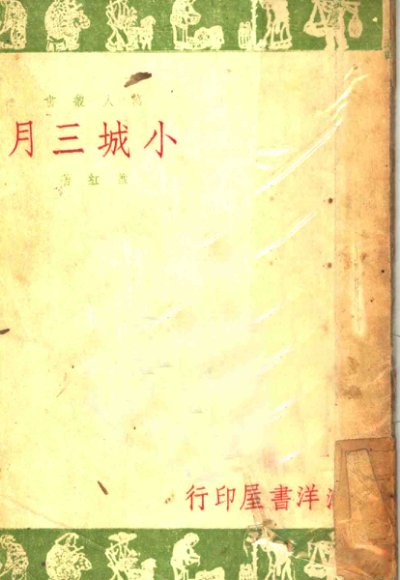 人叢書
小城三月
蕭紅著
海洋書屋印行